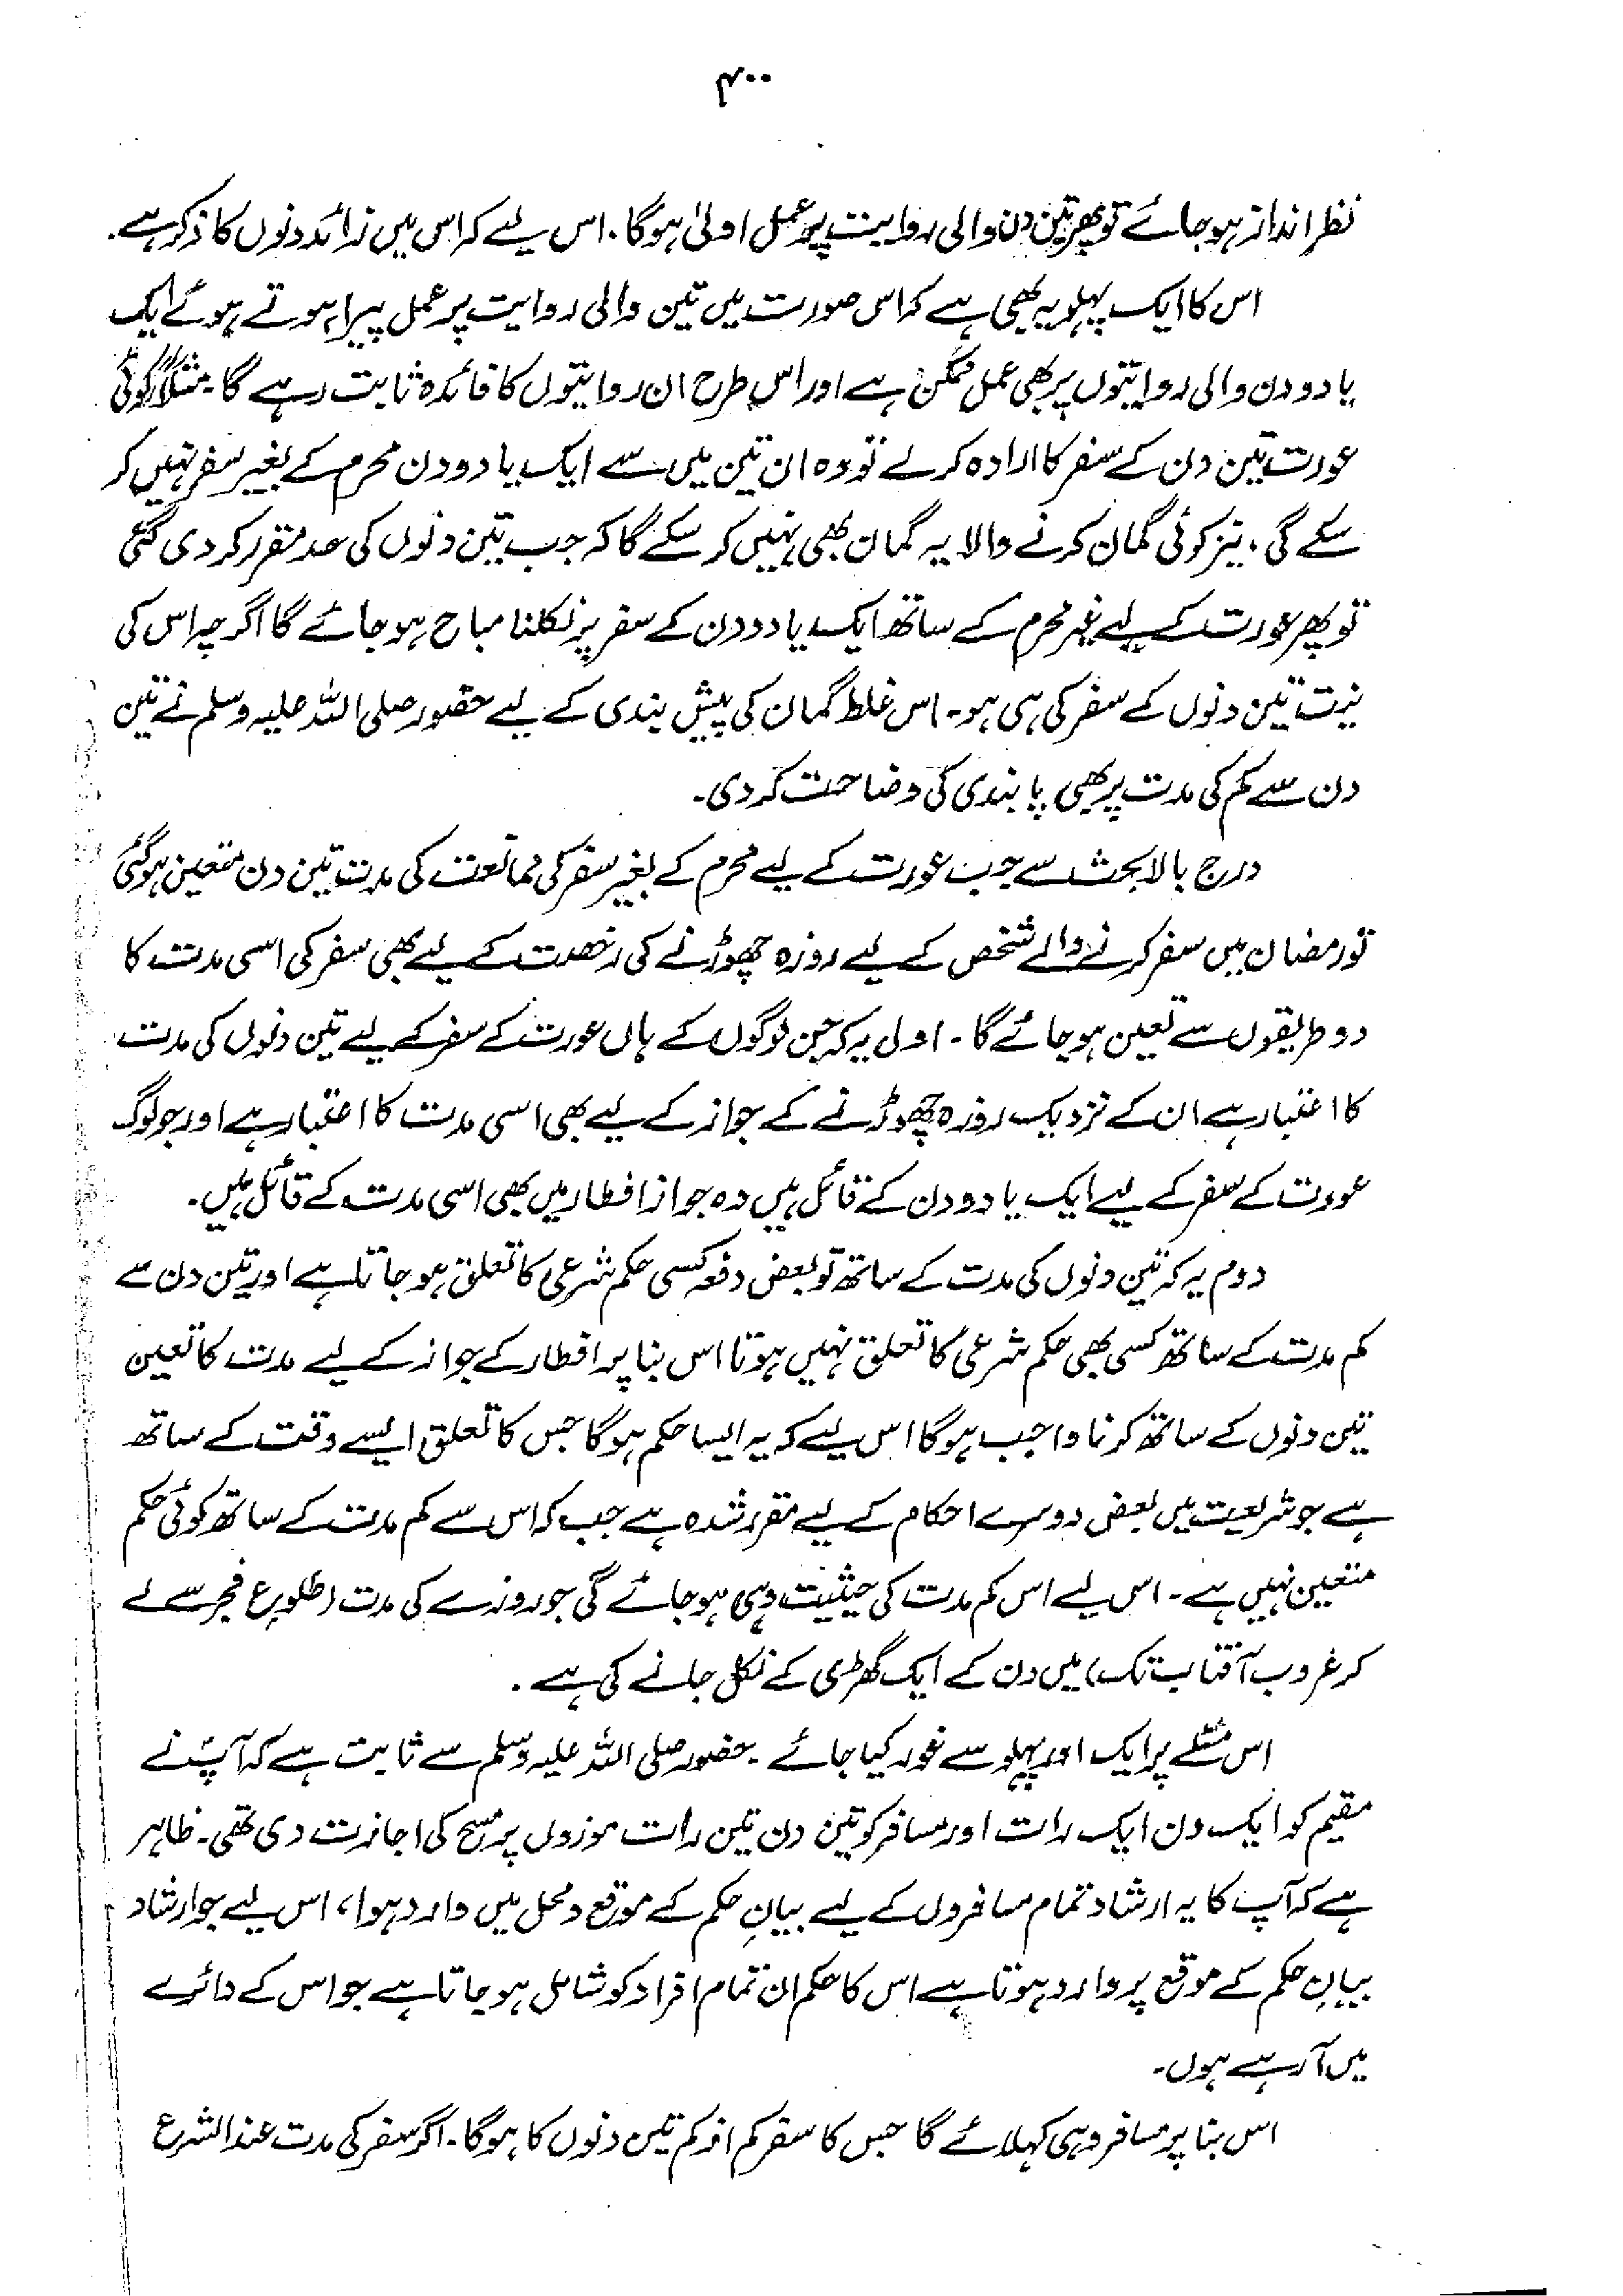 ۴۰۰
نظر انداز ہو جائے تو پھر تین دن والی روایت پر عمل اولیٰ ہوگا۔ اس لیے کہ اس میں زائد دنوں کا ذکر ہے۔
اس کا ایک پہلو یہ بھی ہے کہ اس صورت میں تین والی روایت پر عمل پیرا ہوتے ہوئے ایک
یا دو دن والی روایتوں پر بھی عمل ممکن ہے اور اس طرح ان روایتوں کا فائدہ ثابت رہے گا۔ مثلاً اگر کوئی
عورت تین دن کے سفر کا ارادہ کرلے تو وہ ان تین میں سے ایک یا دو دن محرم کے بغیر سفر نہیں کر
سکے گی، نیز کوئی گمان کرنے والا یہ گمان بھی نہیں کر سکے گا کہ جب تین دنوں کی حد مقرر کر دی گئی
تو پھر عورت کے لیے غیر محرم کے ساتھ ایک یا دو دن کے سفر پر نکلنا مباح ہو جائے گا اگرچہ اس کی
نیت تین دنوں کے سفر کی ہی ہو۔ اس غلط گمان کی پیش بندی کے لیے حضور صلی اللہ علیہ وسلم نے تین
دن سے کم کی مدت پر بھی پابندی کی وضاحت کر دی۔
درج بالا بحث سے جب عورت کے لیے محرم کے بغیر سفر کی ممانعت کی مدت تین دن متعین ہوگئی
تو رمضان میں سفر کرنے والے شخص کے لیے روزہ چھوڑنے کی رخصت کے لیے بھی سفر کی اسی مدت کا
دو طریقوں سے تعین ہو جائے گا۔ اول یہ کہ جن لوگوں کے ہاں عورت کے سفر کے لیے تین دنوں کی مدت
کا اعتبار ہے ان کے نزدیک روزہ چھوڑنے کے جواز کے لیے بھی اسی مدت کا اعتبار ہے اور جو لوگ
عورت کے سفر کے لیے ایک یا دو دن کے قائل ہیں وہ جواز افطار میں بھی اسی مدت کے قائل ہیں۔
دوم یہ کہ تین دنوں کی مدت کے ساتھ تو بعض دفعہ کسی حکم شرعی کا تعلق ہو جاتا ہے اور تین دن سے
کم مدت کے ساتھ کسی بھی حکم شرعی کا تعلق نہیں ہوتا اس بنا پر افطار کے جواز کے لیے مدت کا تعین
تین دنوں کے ساتھ کرنا واجب ہوگا اس لیے کہ یہ ایسا حکم ہوگا جس کا تعلق ایسے وقت کے ساتھ
ہے جو شریعت میں بعض دوسرے احکام کے لیے مقرر شدہ ہے جب کہ اس سے کم مدت کے ساتھ کوئی حکم
متعین نہیں ہے۔ اس لیے اس کم مدت کی حیثیت وہی ہو جائے گی جو روزے کی مدت (طلوع فجر سے لے
کر غروب آفتاب تک) میں دن کے ایک گھڑی کے نکل جانے کی ہے۔
اس مسئلے پر ایک اور پہلو سے غور کیا جائے۔ حضور صلی اللہ علیہ وسلم سے ثابت ہے کہ آپؐ نے
مقیم کو ایک دن ایک رات اور مسافر کو تین دن تین رات موزوں پر مسح کی اجازت دی تھی۔ ظاہر
ہے کہ آپ کا یہ ارشاد تمام مسافروں کے لیے بیانِ حکم کے موقع و محل میں وارد ہوا، اس لیے جو ارشاد
بیانِ حکم کے موقع پر وارد ہوتا ہے اس کا حکم ان تمام افراد کو شامل ہو جاتا ہے جو اس کے دائرے
میں آرہے ہوں۔
اس بنا پر مسافر وہی کہلائے گا جس کا سفر کم از کم تین دنوں کا ہوگا۔ اگر سفر کی مدت عندالشرع